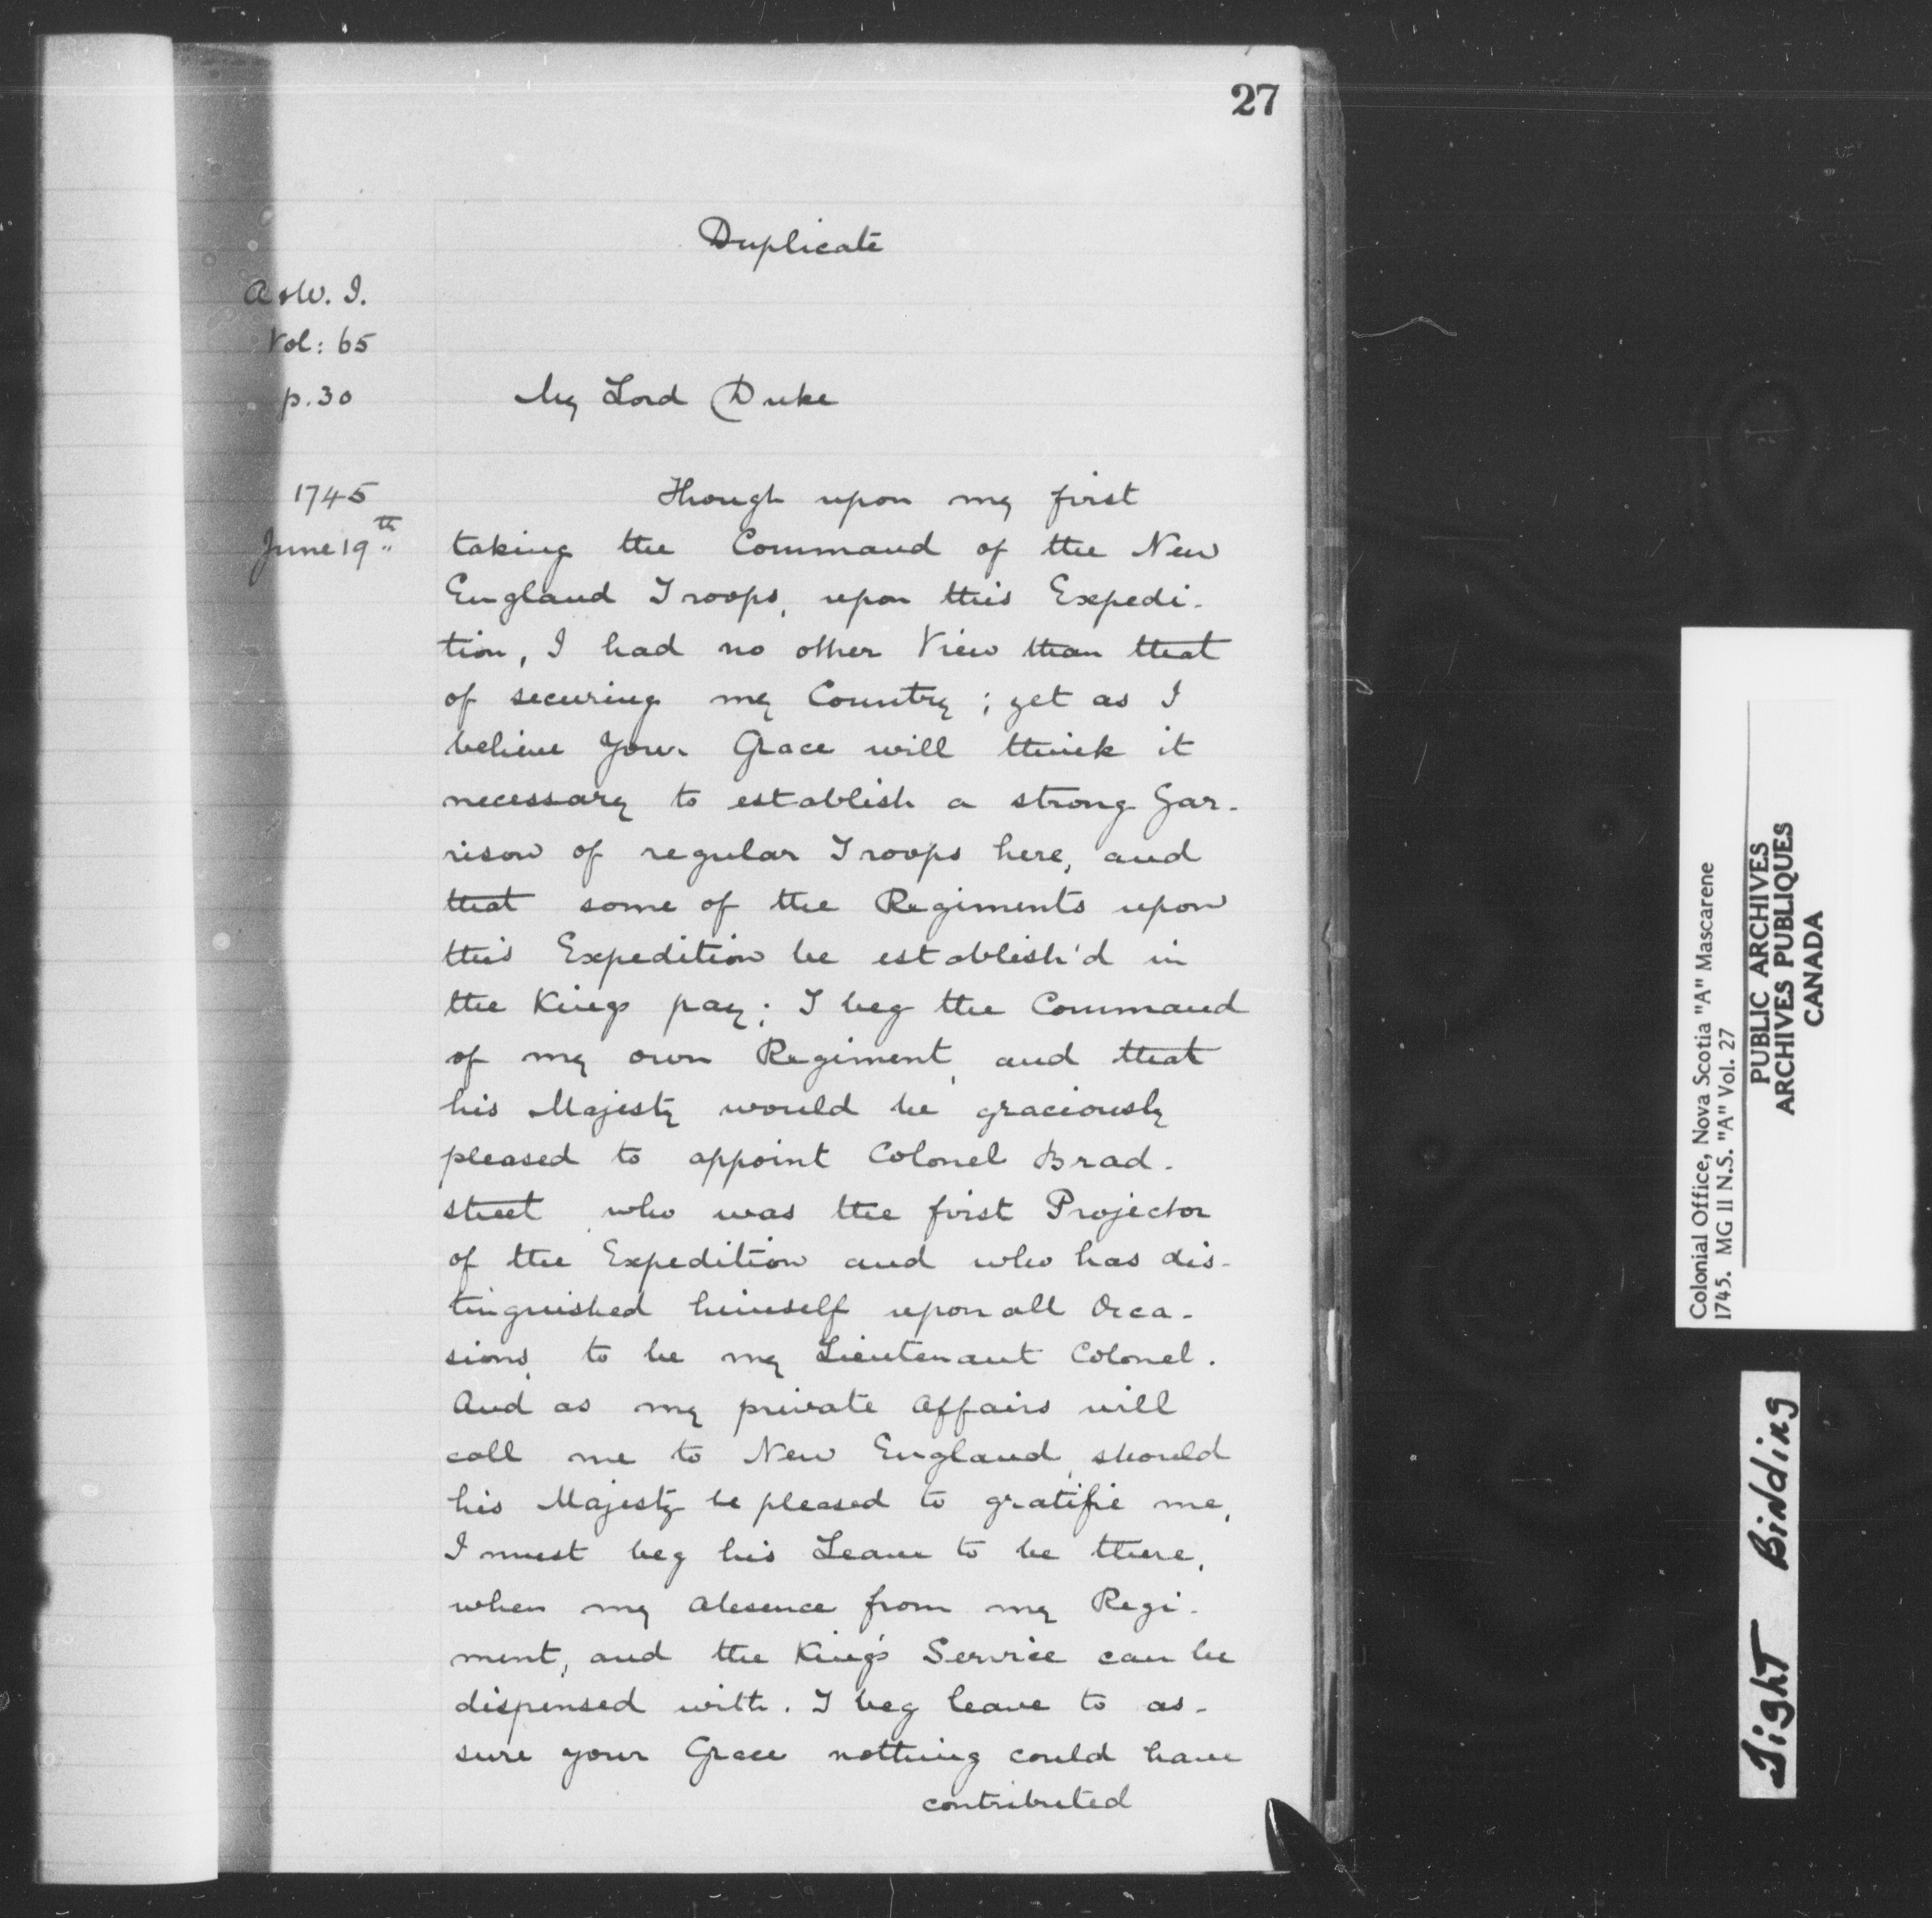 27
Duplicate
A & W. I.
Vol: 65
p. 30
My Lord Duke
1745
June 19th
Though upon my first
taking the Command of the New
England Troops, upon this Expedi-
tion, I had no other View than that
of securing my Country; yet as I
believe Your Grace will think it
necessary to establish a strong Gar-
rison of regular Troops here, and
that some of the Regiments upon
this Expedition be establish'd in
the Kings pay; I beg the Command
of my own Regiment, and that
his Majesty would be graciously
pleased to appoint Colonel Brad-
street, who was the first Projector
of the Expedition and who has dis-
tinguished himself upon all Occa-
sions, to be my Lieutenant Colonel.
And as my private Affairs will
call me to New England, should
his Majesty be pleased to gratifie me,
I must beg his Leave to be there,
when my absence from my Regi-
ment, and the King's Service can be
dispensed with. I beg leave to as-
sure your Grace nothing could have
contributed
Colonial Office, Nova Scotia "A" Mascarene
1745. MG 11 N.S. "A" Vol. 27
PUBLIC ARCHIVES
ARCHIVES PUBLIQUES
CANADA
Tight Binding